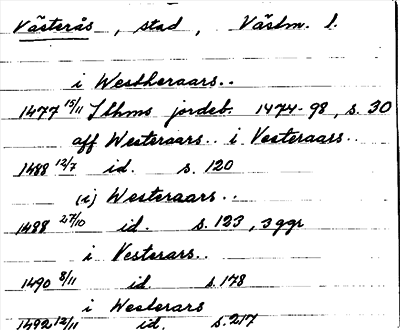 Västerås, stad, Västm. l.
i Westheraars..
1477 15/11 Sthms jordeb. 1474-98, s. 30
aff Westeraars.. i Vesteraars..
1488 12/7 id. s. 120
(i) Westeraars..
1488 27/10 id. s. 123, 3 ggr
i Vesterars..
1490 8/11 id s. 178
i Westerars
1492 12/11 id. s. 217